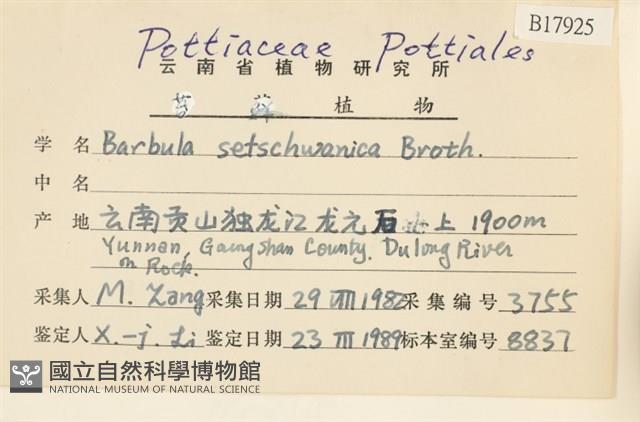 B17925
Pottiaceae Pottiales
云南省植物研究所
苔藓植物
学名 Barbula setschwanica Broth.
中名
产地 云南贡山独龙江龙元石 上 1900m
Yunnan, Gongshan County, Dulong River
on Rock.
采集人 M. Zang 采集日期 29 VIII 1982 采集编号 3755
鉴定人 X.-j. Li 鉴定日期 23 III 1989 标本室编号 8837
國立自然科學博物館
NATIONAL MUSEUM OF NATURAL SCIENCE